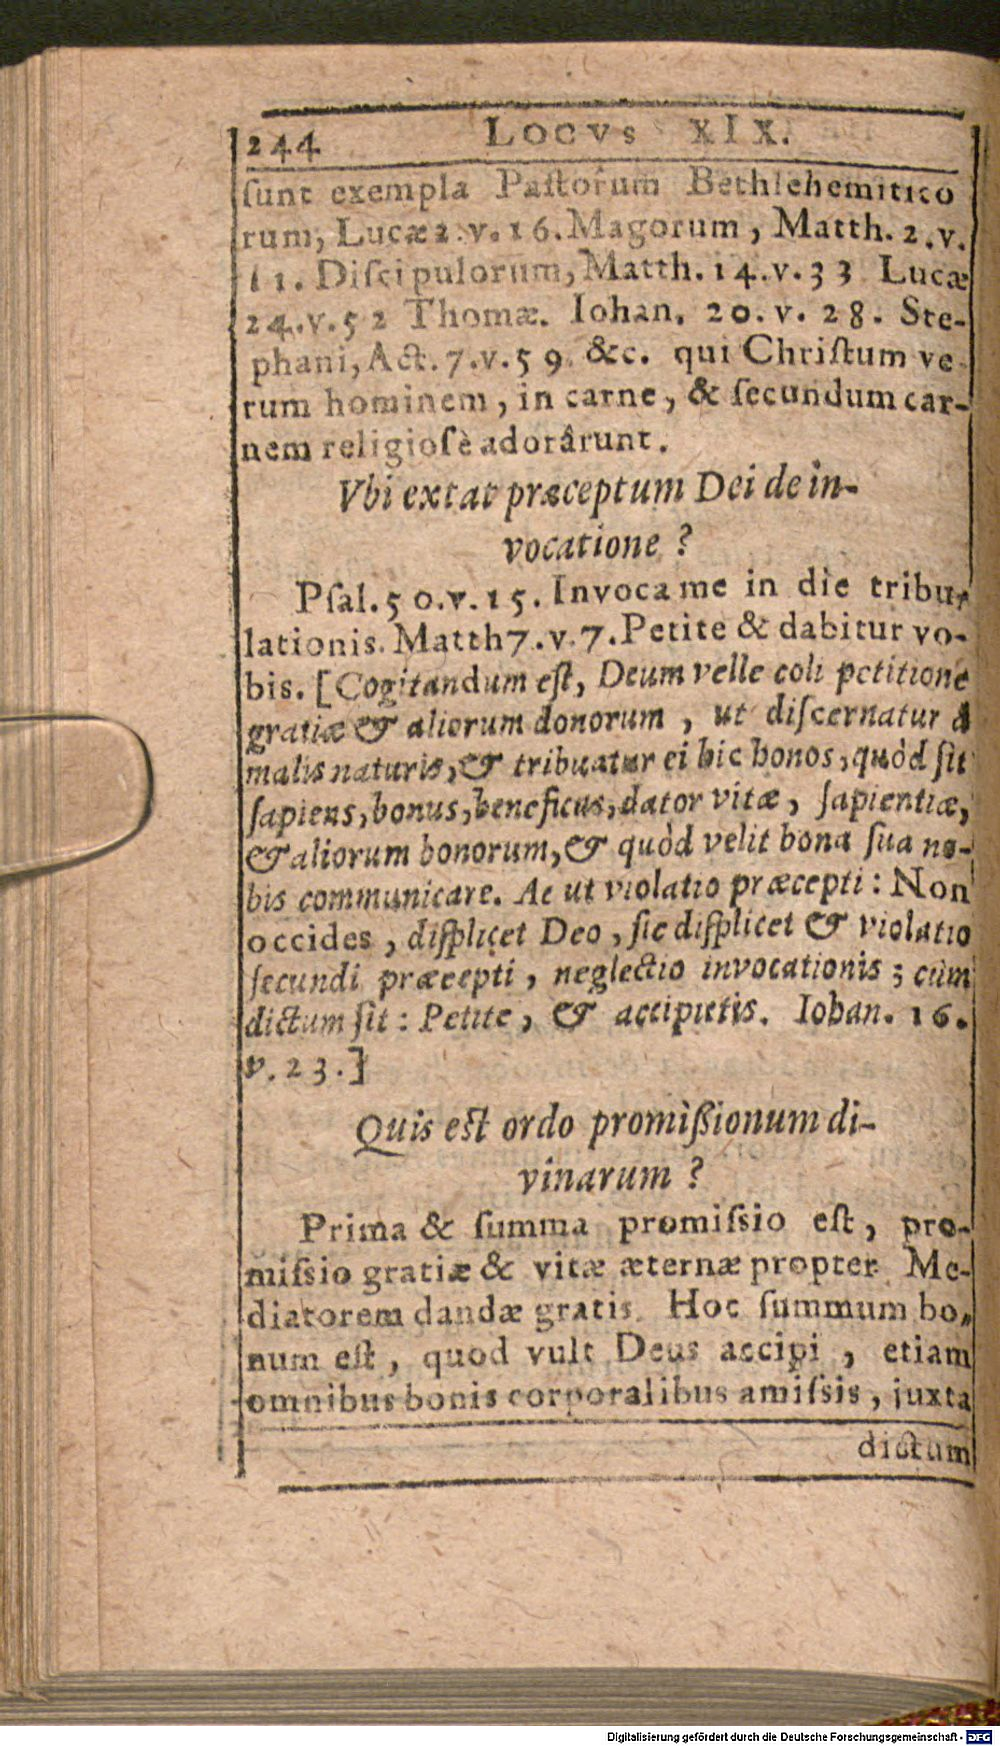 244 LOCVS XIX.
ſunt exempla Paſtorum Bethlehemitico
rum, Lucæ 2. v. 16. Magorum, Matth. 2. v.
11. Diſcipulorum, Matth. 14. v. 33 Lucæ
24. v. 52 Thomæ. Iohan. 20. v. 28. Ste-
phani, Act. 7. v. 59. &c. qui Chriſtum ve
rum hominem, in carne, & ſecundum car-
nem religioſè adorârunt.
Vbi extat præceptum Dei de in-
vocatione ?
Pſal. 50. v. 15. Invoca me in die tribu-
lationis. Matth 7. v. 7. Petite & dabitur vo-
bis. [Cogitandum eſt, Deum velle coli petitione
gratiæ & aliorum donorum, ut diſcernatur à
malis naturis, & tribuatur ei hic honos, quòd ſit
ſapiens, bonus, beneficus, dator vitæ, ſapientiæ,
& aliorum bonorum, & quòd velit bona ſua no-
bis communicare. Ac ut violatio præcepti: Non
occides, diſplicet Deo, ſic diſplicet & violatio
ſecundi præcepti, neglectio invocationis; cùm
dictum ſit: Petite, & accipietis. Iohan. 16.
v. 23.]
Quis eſt ordo promißionum di-
vinarum ?
Prima & ſumma promiſsio eſt, pro-
miſsio gratiæ & vitæ æternæ propter Me-
diatorem dandæ gratis. Hoc ſummum bo-
num eſt, quod vult Deus accipi, etiam
omnibus bonis corporalibus amiſsis, juxta
dictum
Digitalisierung gefördert durch die Deutsche Forschungsgemeinschaft - DFG